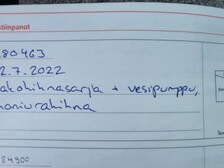 tiinpanot
80463
2.7.2022
akohihnasarja + vesipumppu,
moniurahihna
84900